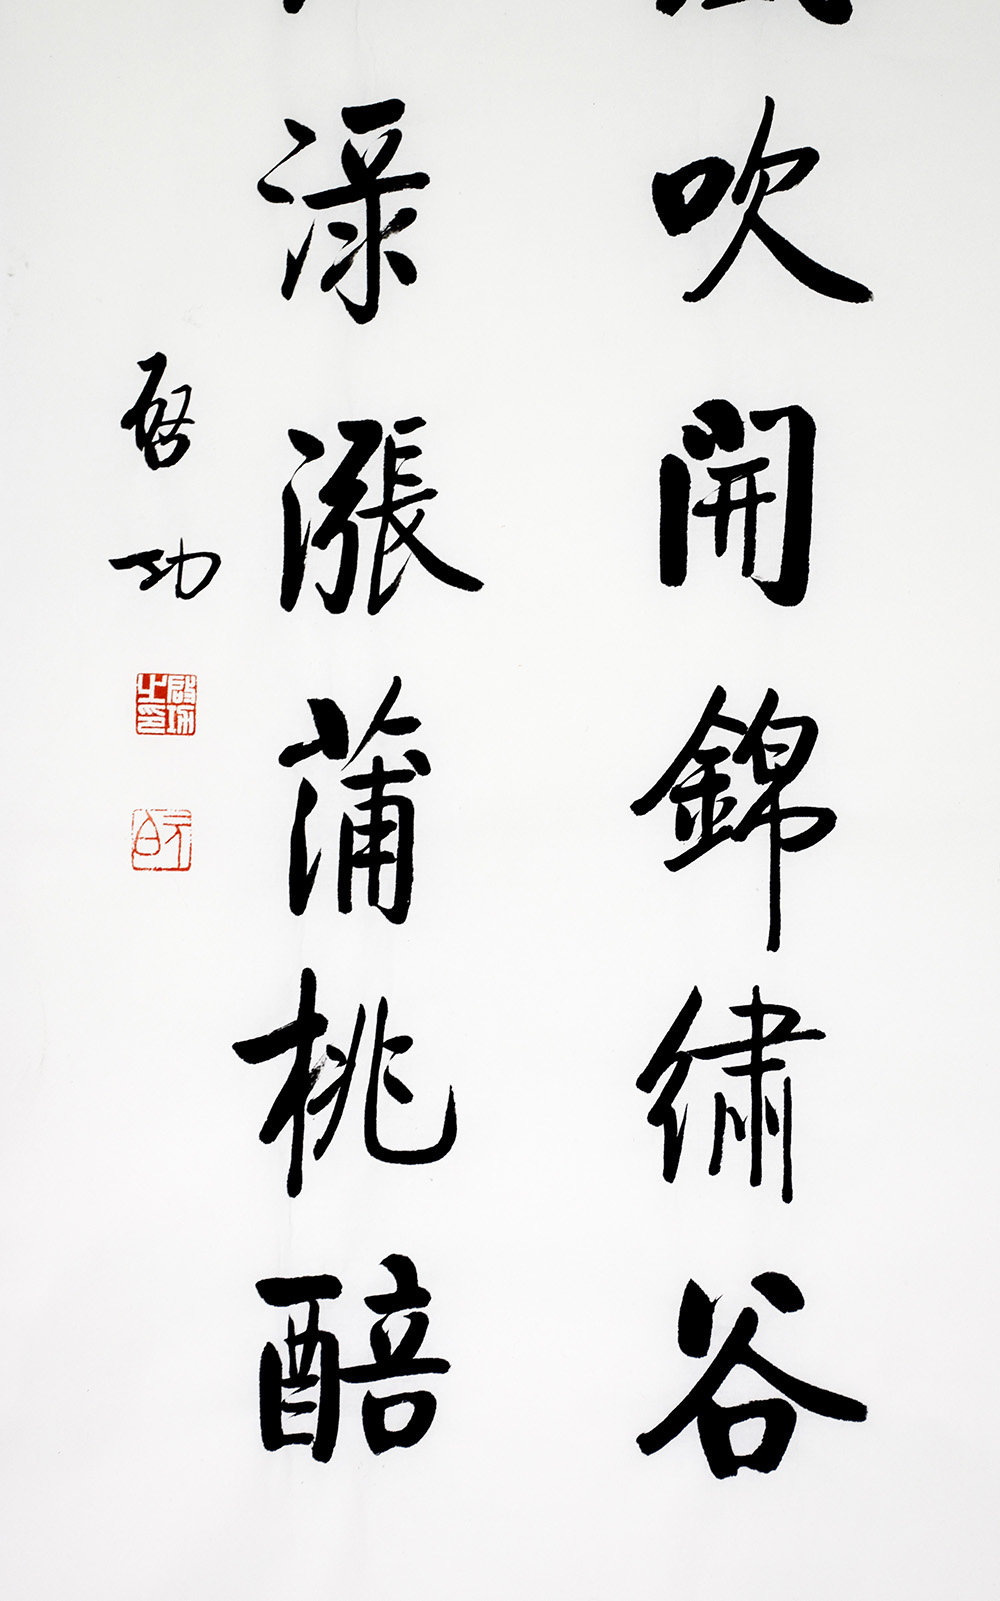 吹開錦繡谷
渌漲蒲桃醅
啓功
啓功之印
元白